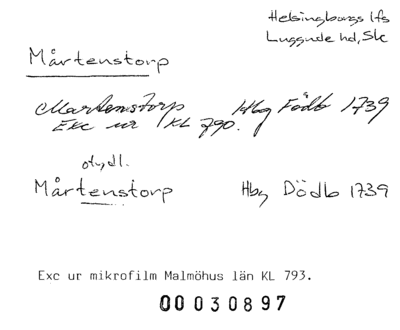 Helsingborgs lfs
Luggude hd, Sk
Mårtenstorp
Martenstorp Hbg Födb 1739
Exc ur KL 790.
otydl.
Mårtenstorp Hbg Dödb 1739
Exc ur mikrofilm Malmöhus län KL 793.
00030897